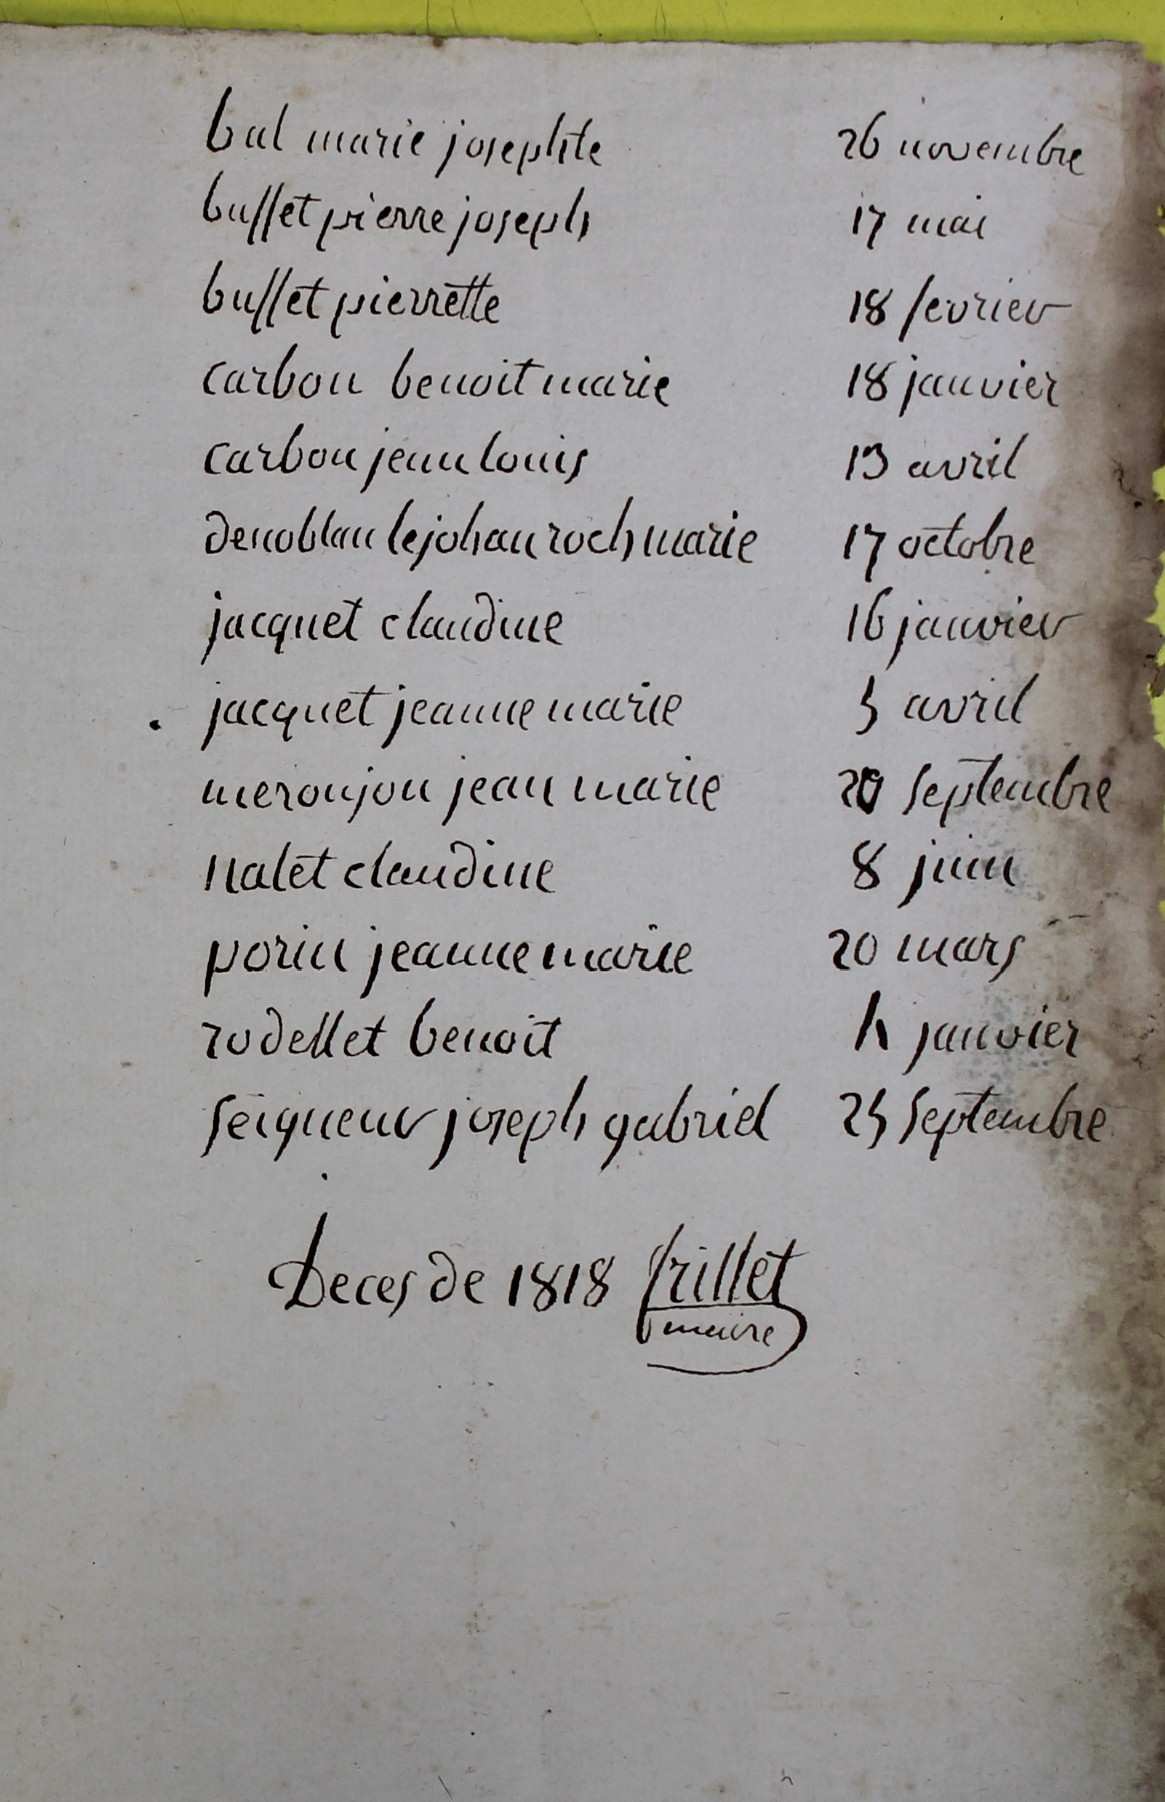 bal marie josephte 26 novembre
buffet pierre joseph 17 mai
buffet pierrette 18 fevrier
carbon benoit marie 18 janvier
carbon jean louis 13 avril
denoblan lejohan roch marie 17 octobre
jacquet claudine 16 janvier
jacquet jeanne marie 5 avril
meronjon jean marie septembre
nalet claudine 8 juin
porin jeanne marie 20 mars
rodellet benoit janvier
seigneur joseph gabriel 25 septembre
Deces de 1818 frillet
maire